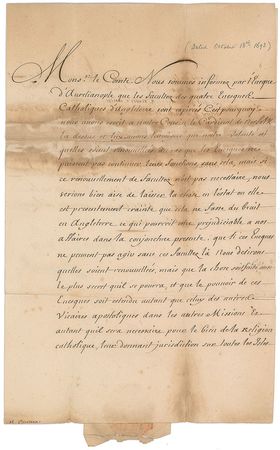 (Dated October 18th 1692)
Mons.r le Comte. Nous sommes informez par l'Eveque
d'Aurelianople que les facultez des quatre Evesques
Catholiques d'Angleterre sont expirées C'est pourquoy
nous avons escrit a nostre St Pere le Cardinal de
la dessus et luy avons que nostre est
quelles soient renouvellées en cas que les Evesques ne
puissent pas continuer leurs fonctions sans cela, mais si
ce renouvellement de facultez n'est pas necessaire, nous
serions bien aise de laisser la chose en l'estat ou elle
est presentement crainte que cela ne fasse du bruit
en Angleterre ce qui pourroit estre prejudiciable a nos
affaires dans la conjoncture presente, que si ces Evesques
ne peuvent pas agir sans ces facultez là Nous desirons
quelles soient renouvellées, mais que la chose soit faite
le plus secret qu'il se pourra, et que le pouvoir de ces
Evesques soit estendu autant que celuy des autres
Vicaires apostoliques dans les autres Missions &
autant qu'il sera necessaire pour le bien de la Religion
catholique, leur donnant jurisdiction sur toutes les Isles